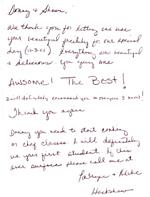 Donny & Shawn,
We thank you for letting us use
your beautiful facility for our special
day (1-2-11). Everything was beautiful
& delicious. You guys are
Awesome! The Best!
I will definitely recommend you to everyone I know!
Thank you again
Donny you need to start cooking
or chef classes & I will definitely
be your first student. If this
ever happens please call me at
Hendershaw